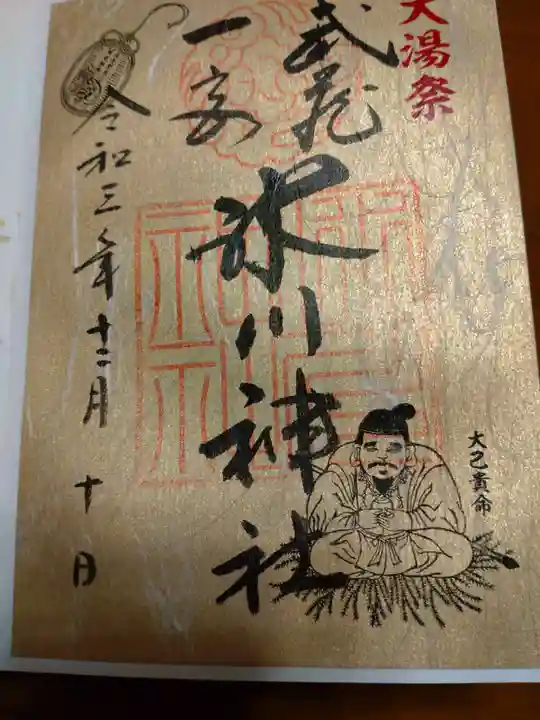 大湯祭
武蔵
一宮
氷川神社
大己貴命
令和三年十二月十日